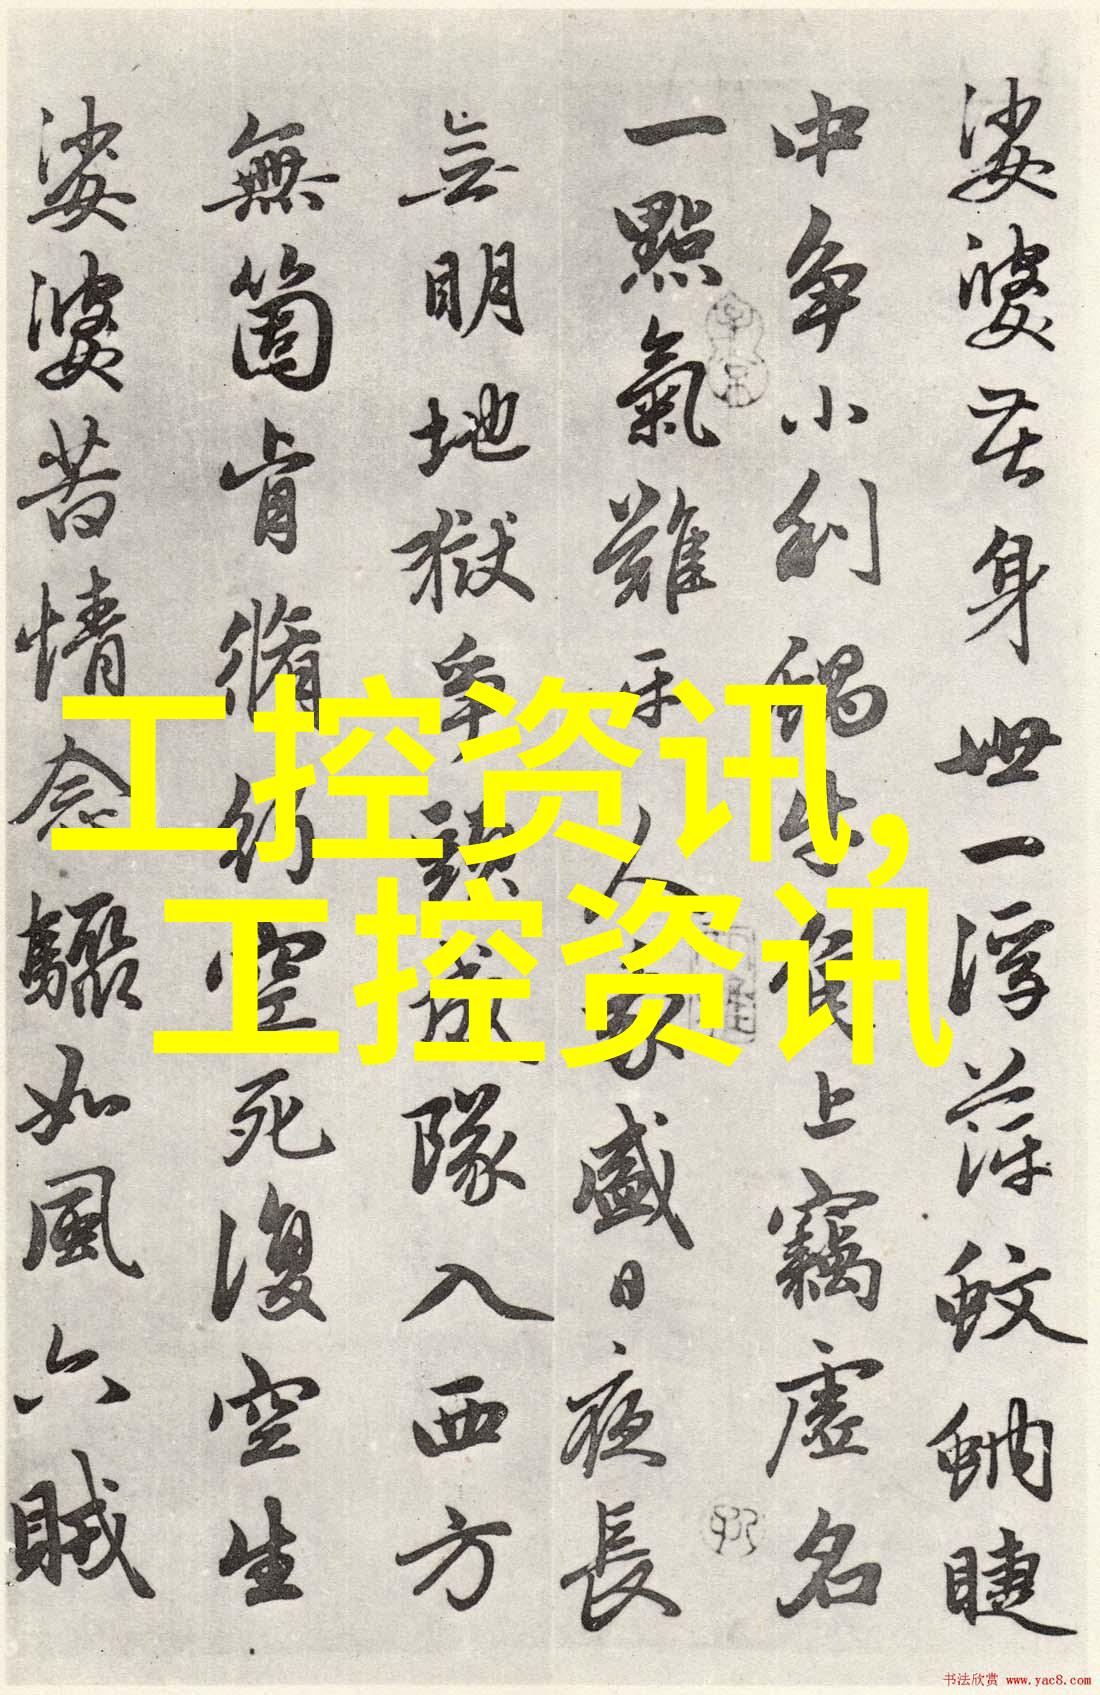 娑婆苦身世一浮萍蚊蚋睫
中争小利蝸牛角上竊虚名
一點氣難平人我盛日夜長
無明地獄爭頭成隊入西方
無箇肯脩行空死復空生
娑婆苦情念驟如風六賊
工控资讯,
工控资讯
书法欣赏 www.yac8.com